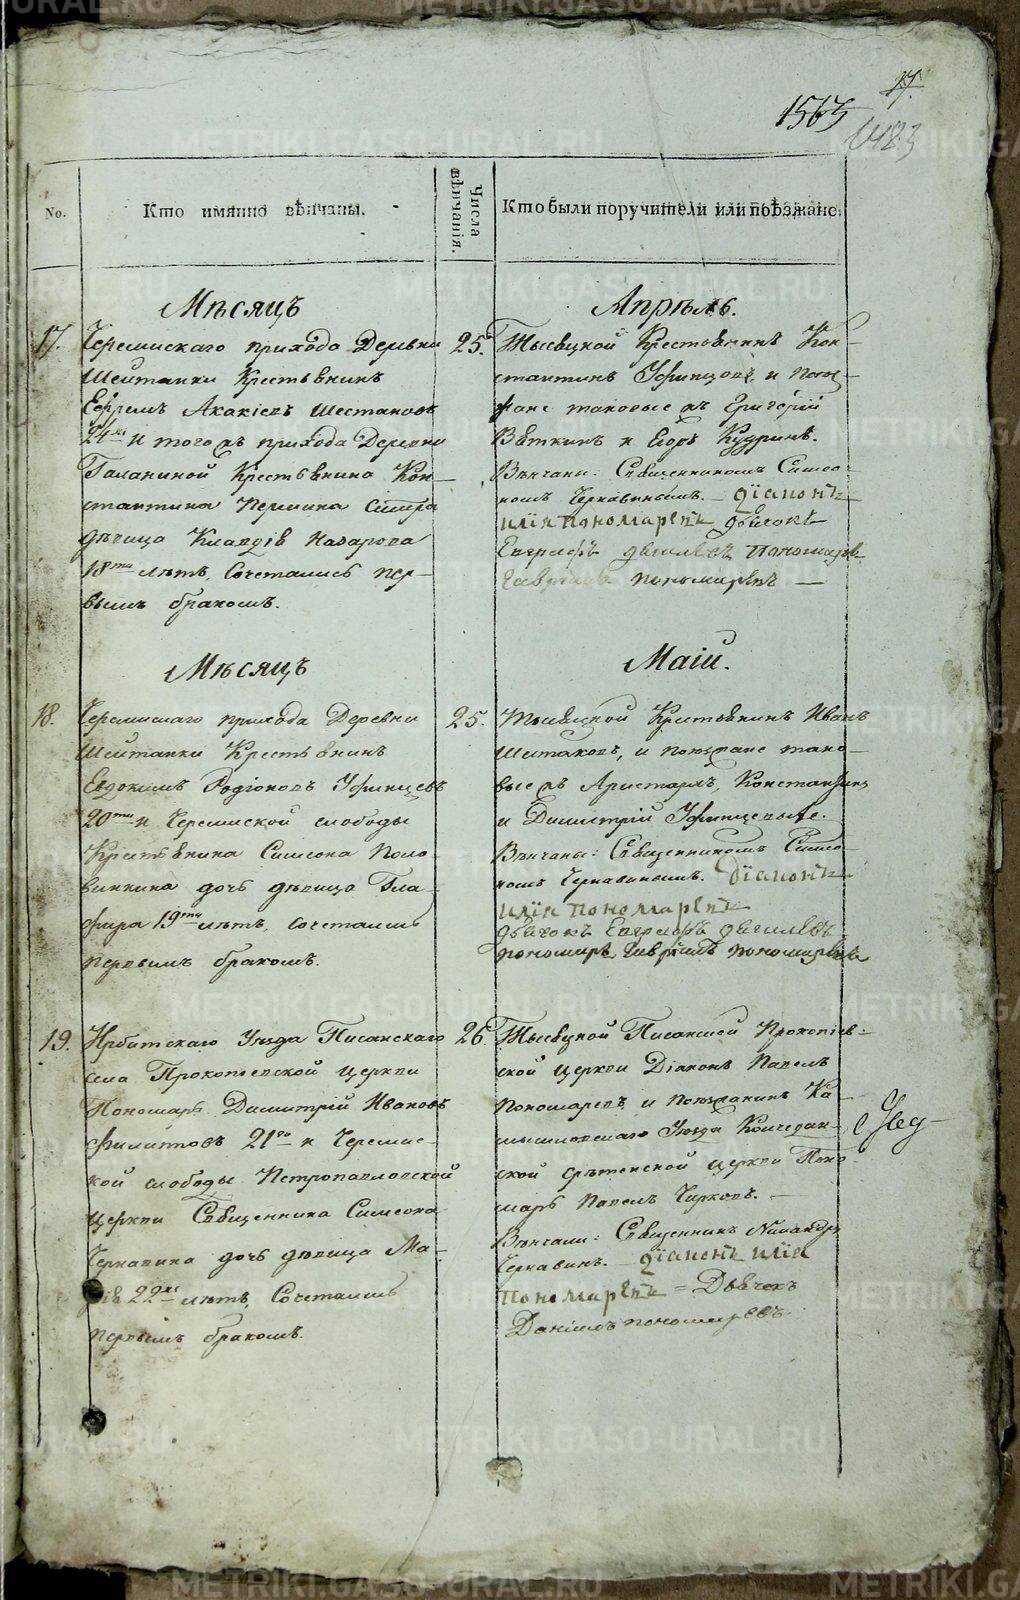 17.
1565
1483
No.
Кто имянно вѣнчаны.
Числа вѣнчанія.
Кто были поручители или поѣзжане.
Мѣсяцъ
Апрѣль.
17.
Черемискаго прихода Деревни
Шейтанки Крестьянинъ
Ефремъ Акакіевъ Шестаковъ
24 хъ и того же прихода Деревни
Галаниной Крестьянина Кон-
стантина
дѣвица Клавдія Назарова
18ти лѣтъ, Сочетались пер-
вымъ бракомъ.
25.
Тысяцкой Крестьянинъ Кон-
стантинъ Уфинцовъ, и поѣз-
жане таковые жъ Григорій
Вяткинъ и Егоръ Кудринъ.
Вѣнчаны: Священникомъ Симео-
номъ Чернавинымъ. Діаконъ
Илія Пономаревъ дьячокъ
Евграфъ пономарь
Гавріилъ пономаревъ
Мѣсяцъ
Маій.
18.
Черемискаго прихода Деревни
Шейтанки Крестьянинъ
Евдокимъ Родіоновъ Уфинцевъ
20ти и Черемиской слободы
Крестьянина Симеона Поло-
винкина дочь дѣвица Гла-
фира 19ти лѣтъ, сочетались
первымъ бракомъ.
25.
Тысяцкой Крестьянинъ Иванъ
Шестаковъ, и поѣзжане тако-
вые жъ Аристархъ, Константинъ
и Димитрій Уфинцевы.
Вѣнчаны: Священникомъ Симео-
номъ Чернавинымъ. Діаконъ
Илія Пономаревъ
дьячокъ Евграфъ
пономарь Гавріилъ пономаревъ
19.
Ирбитскаго Уѣзда Писанскаго
села Прокопіевской церкви
Пономарь Димитрій Ивановъ
Филитовъ 21го и Черемис-
кой слободы Петропавловской
церкви Священника Симеона
Чернавина дочь дѣвица Ма-
рія 22хъ лѣтъ, Сочетались
первымъ бракомъ.
26.
Тысяцкой Писанской Прокопіев-
ской церкви Діаконъ Павелъ
Пономаревъ и поѣзжанинъ Ка-
мышловскаго Уѣзда Колчедан-
ской Срѣтенской церкви Поно-
марь Павелъ Чирковъ.
Вѣнчали: Священникъ
Чернавинъ. Діаконъ Илія
Пономаревъ = Дьячекъ
Даніилъ пономаревъ.
METRIKI.GASO-URAL.RU